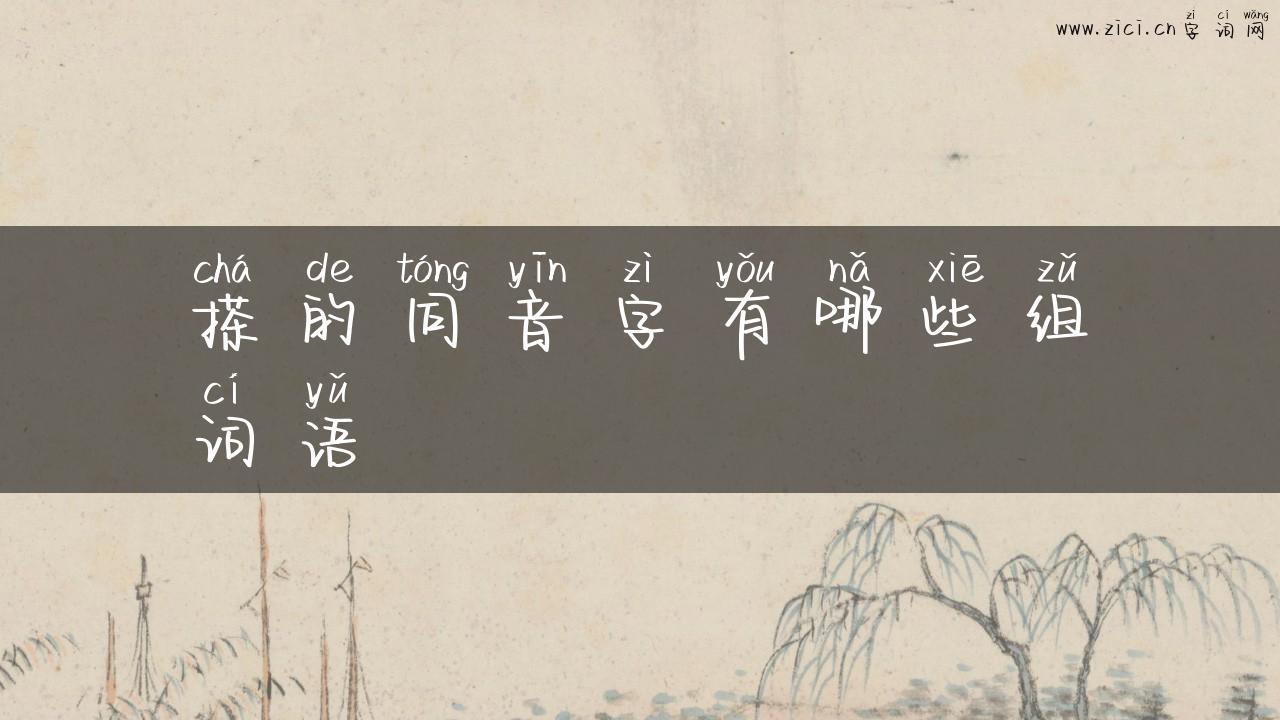 zì cí wǎng
www.zici.cn 字 词 网
chá de tóng yīn zì yǒu nǎ xiē zǔ
搽 的 同 音 字 有 哪 些 组
cí yǔ
词 语